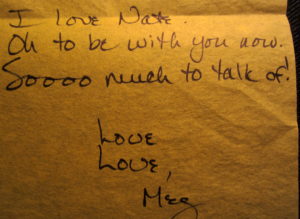 I love Nate.
Oh to be with you now.
Soooo much to talk of!
Love
Love,
Meg